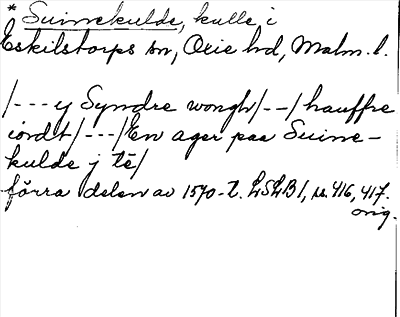 * Suinekulde, kulle i
Eskilstorps sn, Oxie hd, Malm. l.
/--- y Syndre wongh/--/hauffre
iordt/---/En ager paa Suine-
kulde j tē/
förra delen av 1570-t. LSLB 1, s. 416, 417.
orig.